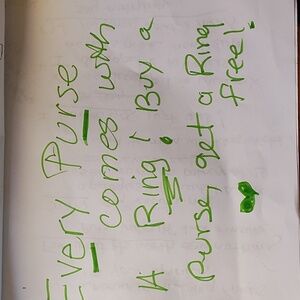 Every Purse
comes with
A Ring! Buy a
Purse, get a Ring
free!